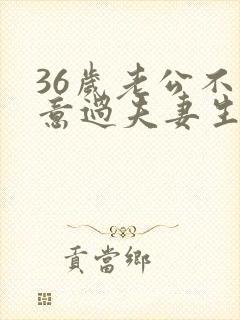 36歲老公不
意過夫妻生
貢當鄉